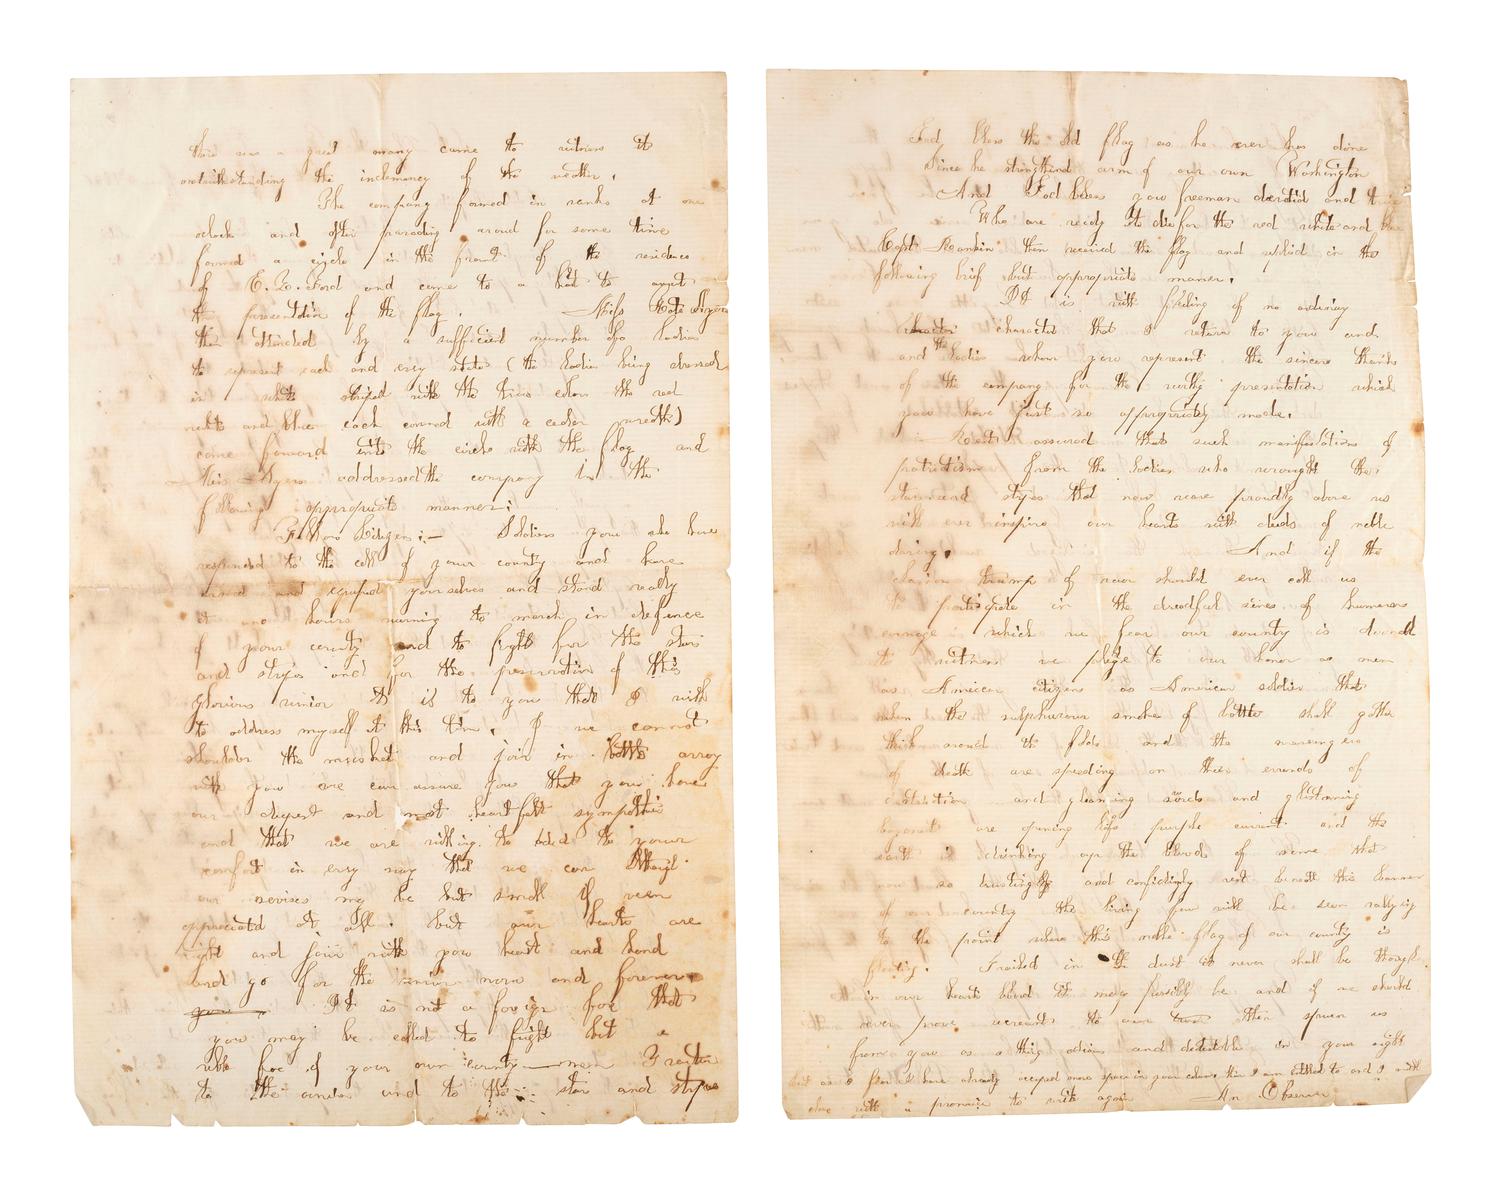 there was a great many came to witness it
notwithstanding the inclemency of the weather.
The company formed in ranks at one
oclock and after parading around for some time
formed a circle in the front of the residence
of E. L. Ford and came to a halt to await
the presentation of the flag. Miss Kate Ayers
then attended by a sufficient number of ladies
to represent each and evry state (the Ladies being dressed
in white striped with the true colors the red
white and blue each crowned with a ceder wreath)
came forward into the circle with the flag and
Miss Ayers addressed the company in the
following appropriate manner:
Fellow Citizens:— Soldiers you who have
responed to the call of your country and have
armed and equiped yourselves and stand ready
at an hours warning to march in defence
of your country and to fight for the stars
and stripes and for the preservation of this
glorious union it is to you that I wish
to address myself at this time. If we cannot
shoulder the musket and join in battle array
with you we can assure you that you have
our deepest and most heartfelt sympathies
and that we are willing to to your
comfort in evry way that we can though
our servises may be but small if even
appreciated at all. but our hearts are
right and join with you heart and hand
and go for the union now and forever
It is not a foreign foe that
you may be called to fight but a
foe of your own country men Traitors
to the union and to the stars and stripes
God bless the old flag as he ever has done
Since he strengthend arm of our own Washington
And God bless you freeman devoted and true
Who are ready to die for the red white and blue
Capt Rankin then received the flag and replied in the
following brief but appropriate manner.
It is with feeling of no ordinary
character that I return to you and
and the Ladies whom you represent the sincere thanks
of the company for the worthy presentation which
you have just so appropriately made.
Rest assured that such manifestations of
patriotism from the Ladies who wrought the
stars and stripes that now wave proudly above us
will ever inspire our hearts with deeds of noble
daring. And if the
clarion trump of war should ever call us
to participate in the dreadful of human
carnage which we fear our country is doomed
to witness we pledge to our honor as men
as American citizens as American soldier that
when the sulphurous smoke of battle shall gather
thick around its folds and the messengers
of death are speeding on their errands of
destruction and gleaming swords and glistening
bayonets are opening lifes purple current and the
earth is drinking up the blood of some that
now so trustingly and confidingly rest beneath the banner
of our country the living few will be seen rallying
to the point where this noble flag of our country is
floating. Trailed in the dust it never shall be though
in our hearts blood it may possibly be and if we should
ever prove recreant to our trust then spurn us
from you as a thing odious and detestable in your sight
but as I fear I have already occupied more space in your column than I am entitled to and I will
close with a promise to write again An Observer